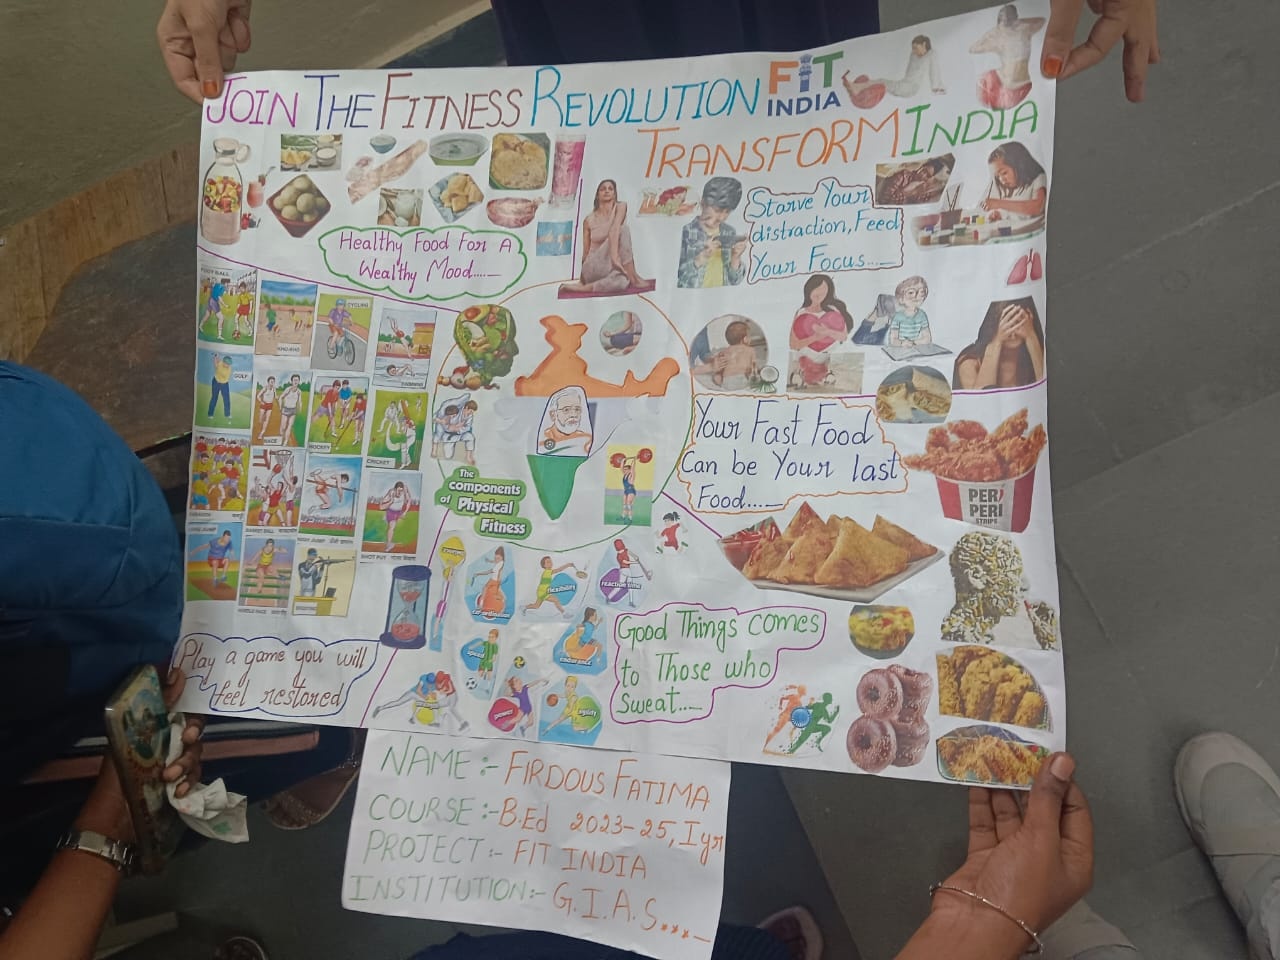 JOIN THE FITNESS REVOLUTION
FIT
INDIA
TRANSFORM INDIA
Healthy Food For A
Wealthy Mood....._
Starve Your
distraction, Feed
Your Focus...._
FOOT BALL
KHO-KHO
CYCLING
GOLF
RACE
HOCKEY
CRICKET
BASKET BALL
HIGH JUMP
SHOT PUT
HURDLE RACE
SHOOTING
The
components
of Physical
Fitness
Your Fast Food
Can be Your last
Food....._
PERI
PERI
STRIPS
coordination
flexibility
reaction time
speed
endurance
power
agility
Play a game you will
feel restored
Good Things comes
to Those who
Sweat...._
NAME :- FIRDOUS FATIMA
COURSE :- B.Ed 2023-25, I yr
PROJECT :- FIT INDIA
INSTITUTION :- G.I.A.S...._